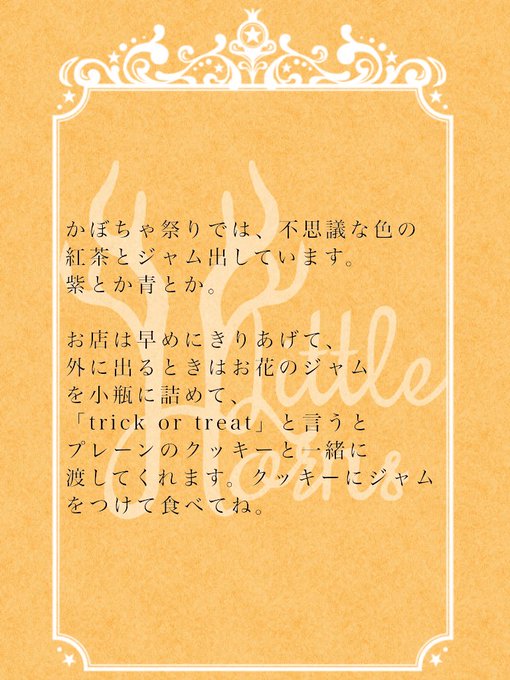 かぼちゃ祭りでは、不思議な色の
紅茶とジャム出しています。
紫とか青とか。
お店は早めにきりあげて、
外に出るときはお花のジャム
を小瓶に詰めて、
「trick or treat」と言うと
プレーンのクッキーと一緒に
渡してくれます。クッキーにジャム
をつけて食べてね。
Little
Horns